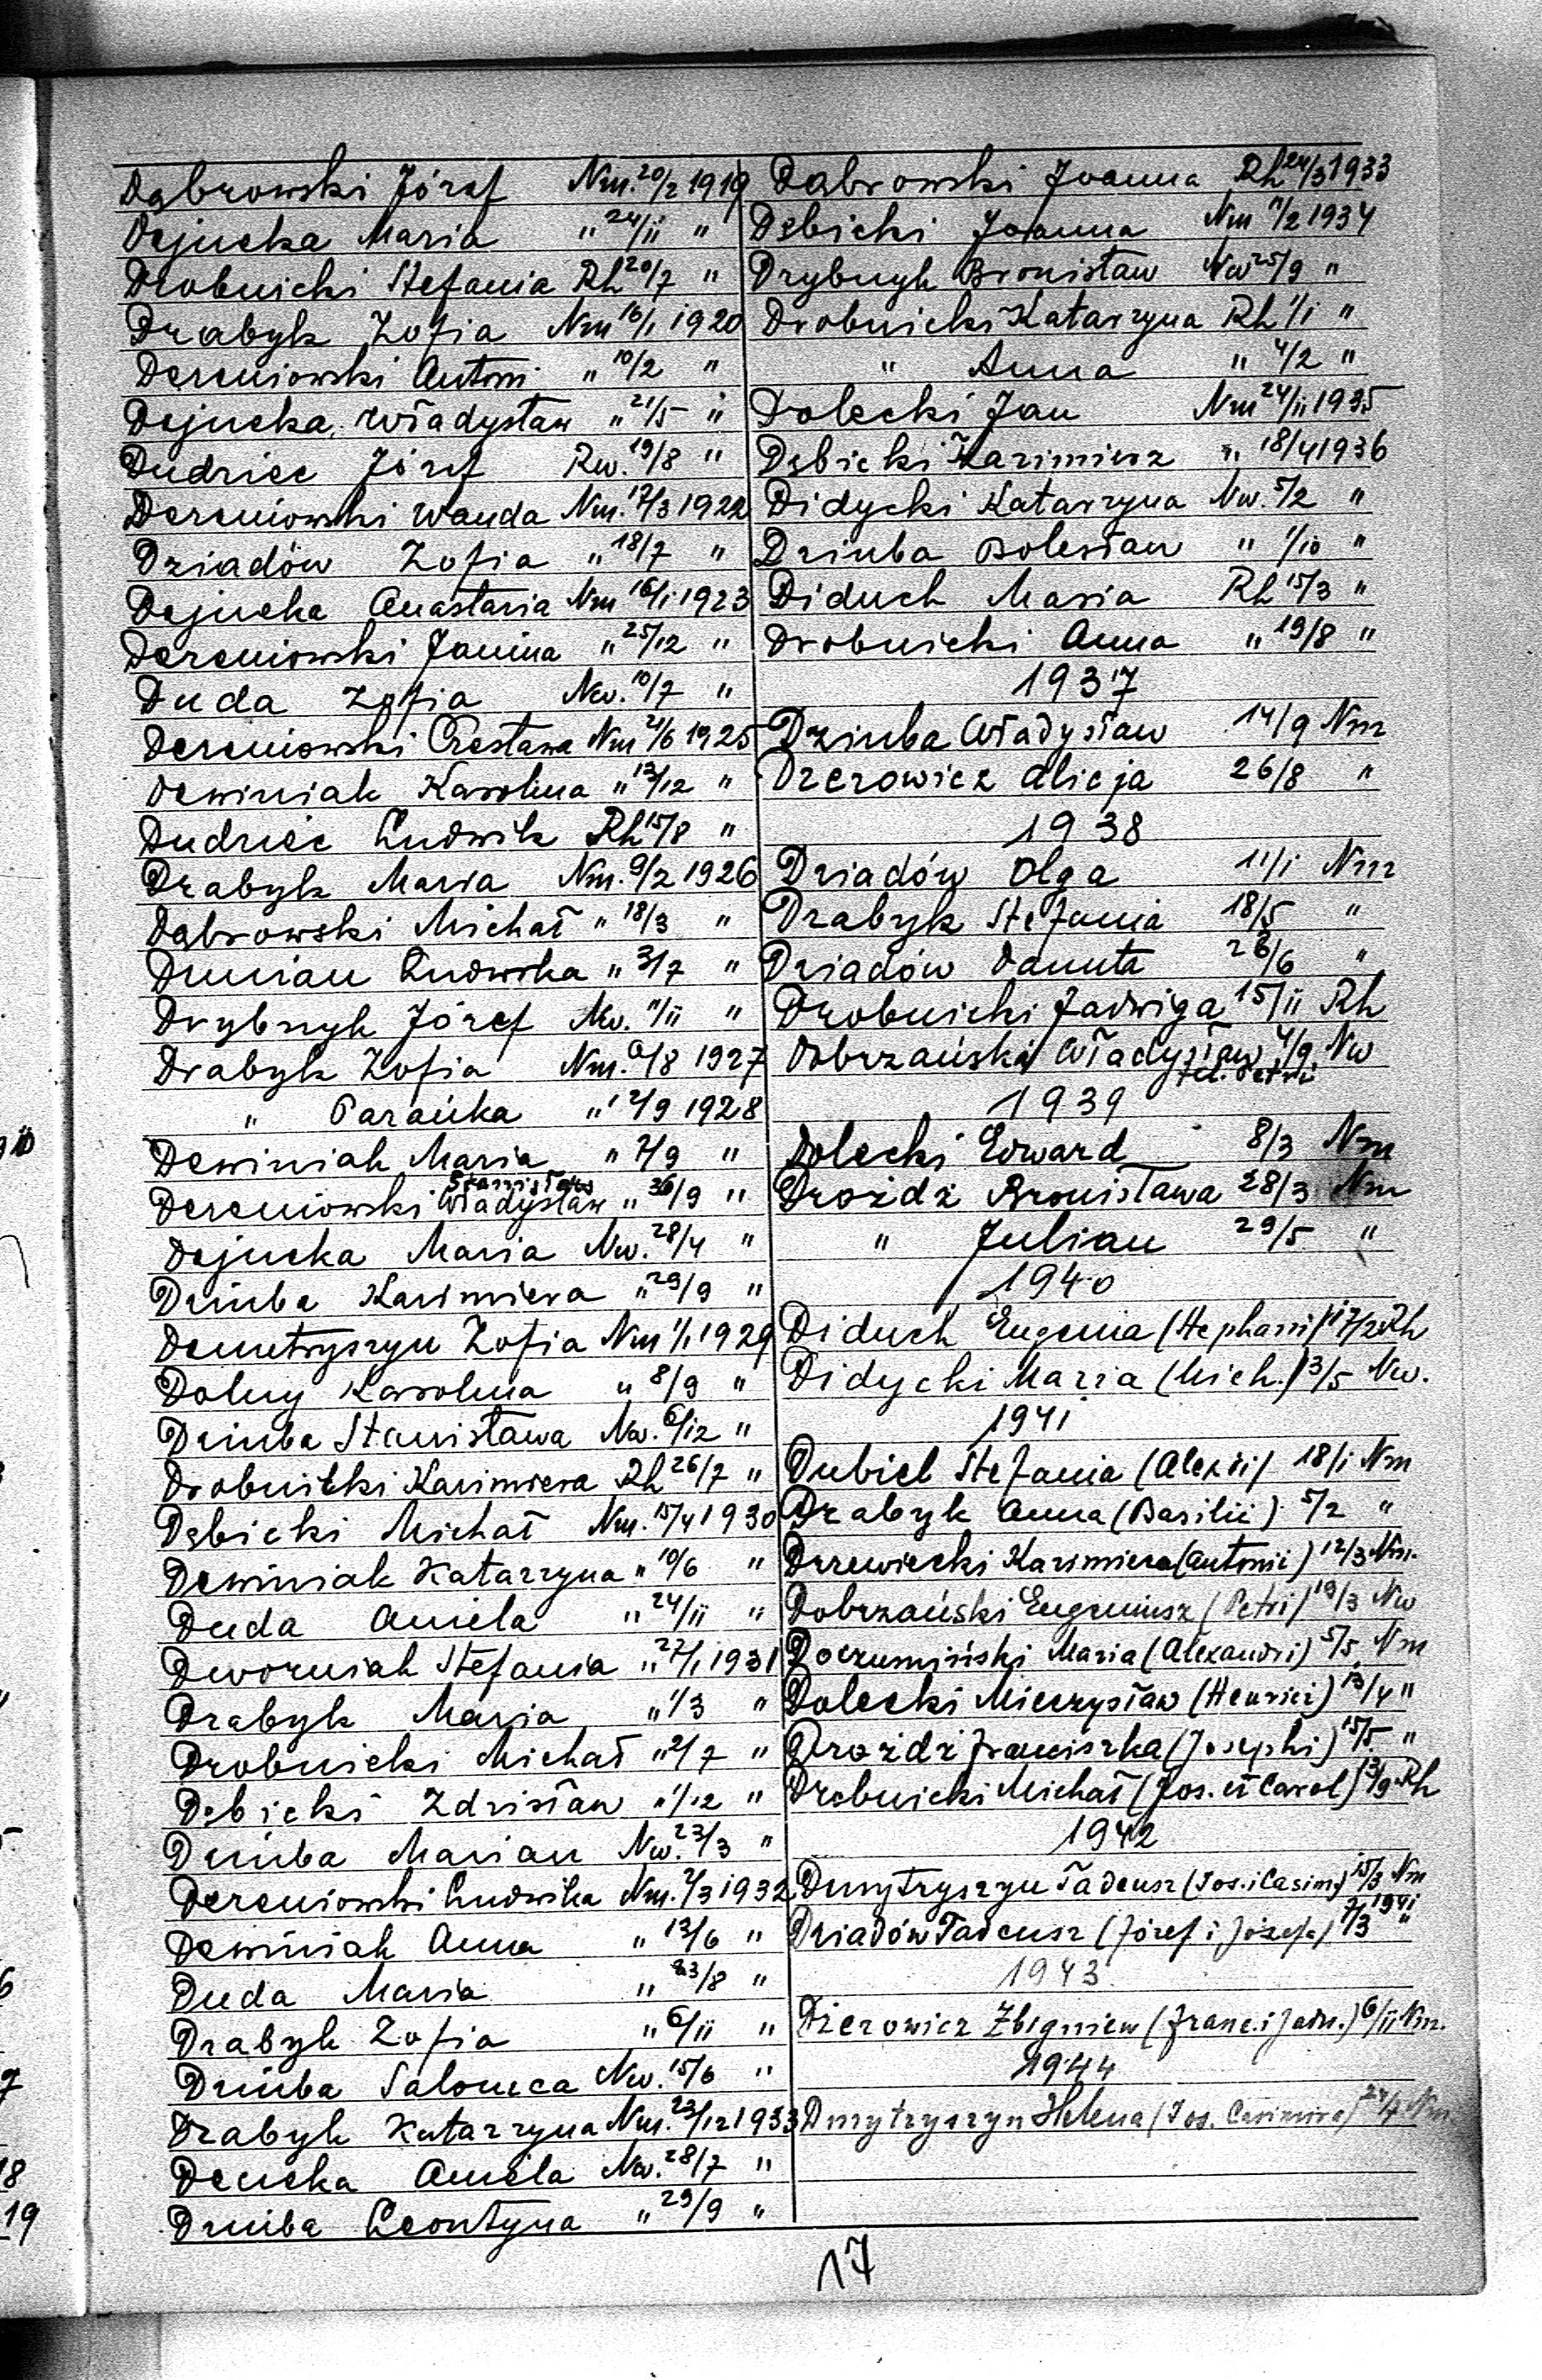 Dąbrowski Józef Nm. 20/2 1919
Dejneka Maria " 24/II "
Drobnicki Stefania Rh 20/7 "
Drabyk Zofia Nm 16/1 1920
Dereniowski Antoni " 10/2 "
Dejneka Władysław " 21/5 "
Dudziec Józef Rw. 19/8 "
Dereniowski Wanda Nm. 17/3 1922
Dziadów Zofia " 18/7 "
Dejneka Anastazia Nm 16/1 1923
Dereniowski Janina " 25/12 "
Duda Zofia Nw. 10/7 "
Dereniowski Czesława Nm 21/6 1925
Dewiniak Karolina " 13/12 "
Dudziec Ludwik Rh 15/8 "
Drabyk Maria Nm. 9/2 1926
Dąbrowski Michał " 18/3 "
Dunian Ludwika " 3/7 "
Drybnyk Józef Nw. 11/II "
Drabyk Zofia Nm. 6/8 1927
" Parańka " 12/9 1928
Dewiniak Maria " 7/9 "
Stanisław
Dereniowski Władysław " 30/9 "
Dejneka Maria Nw. 28/4 "
Dziuba Kazimiera " 29/9 "
Demetryszyn Zofia Nm 1/1 1929
Dolny Karolina " 8/9 "
Dziuba Stanisława Nw. 6/12 "
Drobnicki Kazimiera Rh 26/7 "
Dębicki Michał Nm. 15/4 1930
Dewiniak Katarzyna " 10/6 "
Duda Aniela " 24/II "
Dworniak Stefania " 27/1 1931
Drabyk Maria " 1/3 "
Drobnicki Michał " 2/7 "
Dębicki Zdzisław " 1/12 "
Dziuba Marian Nw. 23/3 "
Dereniowski Ludwika Nm. 7/3 1932
Dewiniak Anna " 12/6 "
Duda Maria " 23/8 "
Drabyk Zofia " 6/II "
Dziuba Salomea Nw. 15/6 "
Drabyk Katarzyna Nm. 23/12 1933
Deneka Aniela Nw. 28/7 "
Dziuba Leontyna " 29/9 "
Dąbrowski Joanna Rh 24/3 1933
Dębicki Joanna Nm 11/2 1934
Drybnyk Bronisław Nw 25/9 "
Drobnicki Katarzyna Rh 1/1 "
" Anna " 4/2 "
Dolecki Jan Nm 24/II 1935
Dębicki Kazimierz " 18/4 1936
Didycki Katarzyna Nw. 5/2 "
Dziuba Bolesław " 1/10 "
Diduch Maria Rh 15/3 "
Drobnicki Anna " 19/8 "
1937
Dziuba Władysław 14/9 Nm
Dzerowicz Alicja 26/8 "
1938
Dziadów Olga 11/1 Nm
Drabyk Stefania 18/5 "
Dziadów Danuta 26/6 "
Drobnicki Jadwiga 15/II Rh
Dobrzański Władysław 4/9 Nw
fil. Petri
1939
Dolecki Edward 8/3 Nm
Drożdż Bronisława 28/3 Nm
" Julian 29/5 "
1940
Diduch Eugenia (Stephani) 17/2 Rh
Didycki Maria (Mich.) 3/5 Nw.
1941
Dubiel Stefania (Alexii) 18/1 Nm
Drabyk Anna (Basilii) 5/2 "
Drzewiecki Kazimiera (Antonii) 12/3 Nm.
Dobrzański Eugeniusz (Petri) 19/3 Nw
Doczumiński Maria (Alexandri) 5/5 Nm
Dolecki Mieczysław (Henrici) 13/4 "
Drożdż Franciszka (Josephi) 15/5 "
Drobnicki Michał (Jos. et Carol) 13/9 Rh
1942
Dmytryszyn Tadeusz (Jos. i Casim) 15/3 Nm
1941
Dziadów Tadeusz (Józef i Józefa) 7/3 "
1943
Dzerowicz Zbigniew (Franc. i Jadw.) 6/II Nm.
1944
Dmytryszyn Helena (Jos. Casimira) 24/7 Nm.
17